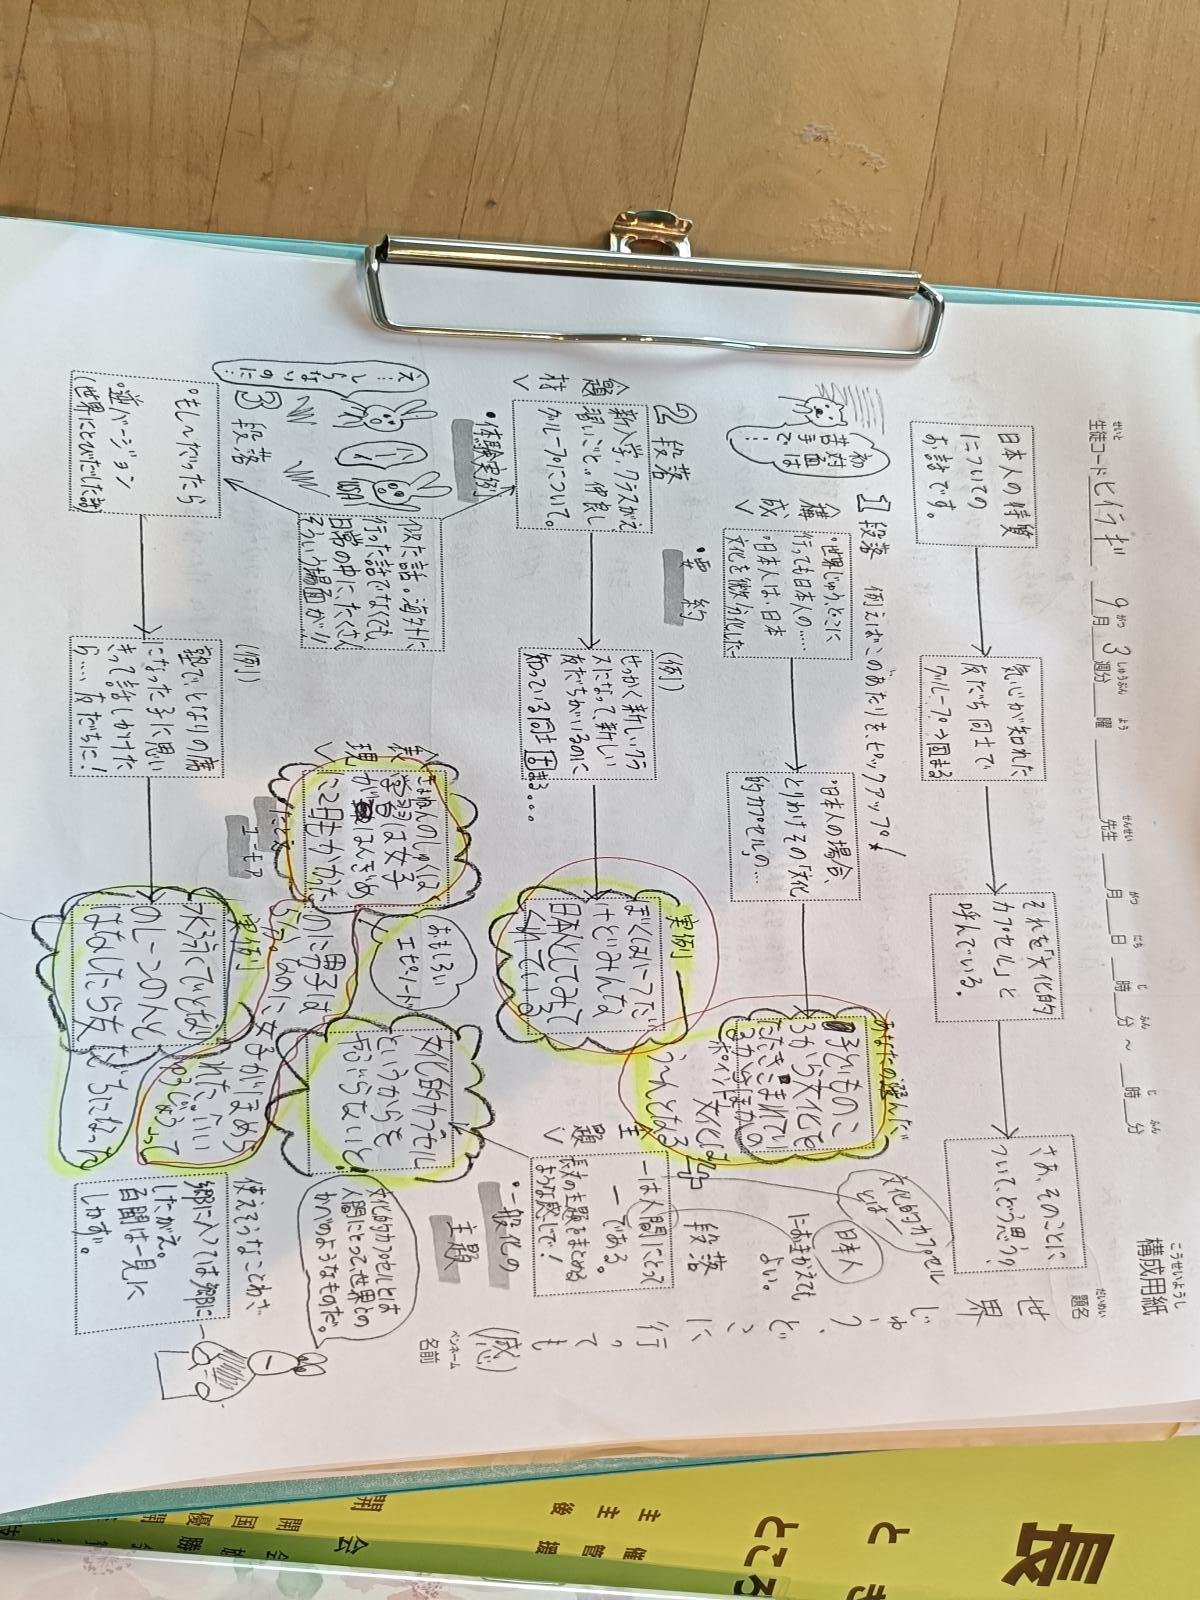 構成用紙
こうせいようし
生徒コード ヒイラギ 9月 3週分 曜 先生 月 日 時 分 ～ 時 分
せいと がつ しゅうぶん よう せんせい がつ にち じ ふん じ ふん
題名
だいめい
世界じゅう、どこに行っても(感)
ペンネーム
名前
日本人の特質
についての
お話です。
気心が知れた
友だち同士で
グループ→固まる
それを「文化的
カプセル」と
呼んでいる。
さあ、そのことに
ついて、どう思う?
1段落 例えばこのあたりをピックアップ!
初対面は
苦手で…
<構成>
・要約
・世界じゅう、どこに
行っても日本人の…
・日本人は、日本
文化を微分化した
・日本人の場合、
とりわけその「文化
的カプセル」の…
あなたの選んだ
ポイント
2段落
<題材>
・体験実例
新入学、クラスがえ
習いごと…仲良し
グループについて。
(例)
せっかく新しいクラ
スになって、新しい
友だちがいるのに
知っている同士固まる。。。
実例
ぼくはハーフだ
けどみんな
日本人としてみて
くれている
似た話。海外に
行った話でなくても
日常の中に、たくさん
そういう場面が!!
3段落
・もし～だったら
・逆バージョン
(世界にとびだした時)
(例)
塾で、となりの席
になった子に思い
きって話しかけた
ら…、友だちに!
実例
水泳でとなり
のレーンの人と
はなしたら友だちになった
<表現>
たとえ
ユーモア
学習は女子
2日もかかった
のに男子は
おもしろい
エピソード
4段落
<主題>
・一般化の
主題
一は人間にとって
一である。
長文の主題をまとめる
ような感じで!
文化的カプセル
とは一
日本人
におきかえても
よい。
文化的カプセル
というからを
やぶらないと!
文化的カプセルとは
人間にとって、世界との
かべのようなものだ。
使えそうなことわざ
郷に入っては郷に
したがえ。
百聞は一見に
しかず。
長
とき
ところ
主催
主管
後援
会
開